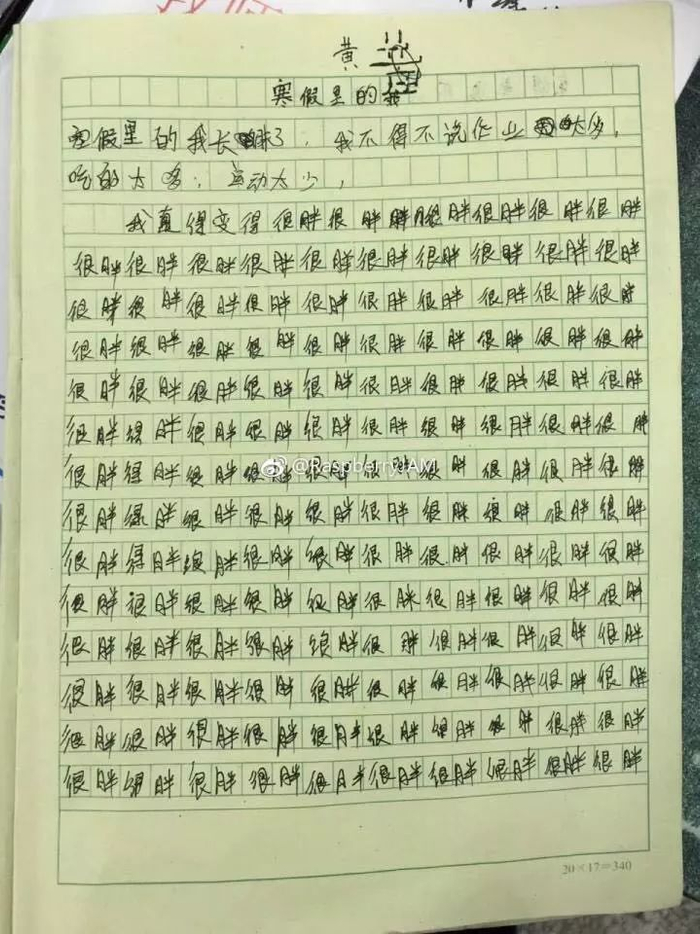 黄
寒假里的我
寒假里的我长胖了，我不得不说作业太多，
吃的太多，运动太少，
我真得变得很胖很胖胖很胖很胖很胖很胖
很胖很胖很胖很胖很胖很胖很胖很胖很胖很胖
很胖很胖很胖很胖很胖很胖很胖很胖很胖很胖
很胖很胖很胖很胖很胖很胖很胖很胖很胖很胖
很胖很胖很胖很胖很胖很胖很胖很胖很胖很胖
很胖很胖很胖很胖很胖很胖很胖很胖很胖很胖
很胖很胖很胖很胖很胖很胖很胖很胖很胖很胖
@RaspberryIAM
很胖很胖很胖很胖很胖很胖很胖很胖很胖很胖
很胖很胖很胖很胖很胖很胖很胖很胖很胖很胖
很胖很胖很胖很胖很胖很胖很胖很胖很胖很胖
很胖很胖很胖很胖很胖很胖很胖很胖很胖很胖
很胖很胖很胖很胖很胖很胖很胖很胖很胖很胖
很胖很胖很胖很胖很胖很胖很胖很胖很胖很胖
很胖很胖很胖很胖很胖很胖很胖很胖很胖很胖
20×17=340